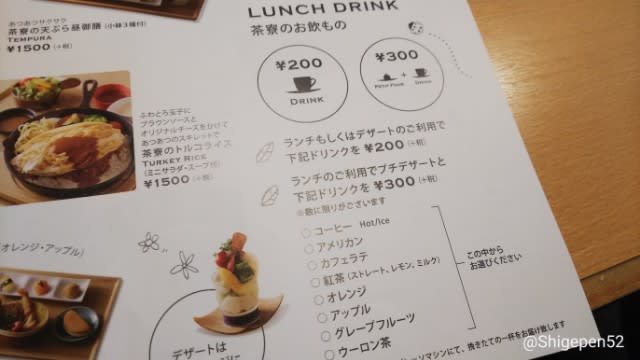 あつあつサクサク
茶寮の天ぷら昼御膳 (小鉢3種付)
TEMPURA
¥1500 (+税)
ふわとろ玉子に
ブラウンソースと
オリジナルチーズをかけて
あつあつのスキレットで
茶寮のトルコライス
TURKEY RICE
(ミニサラダ・スープ付)
¥1500 (+税)
オレンジ・アップル)
デザートは
LUNCH DRINK
茶寮のお飲もの
¥200
DRINK
¥300
PETIT FOUR + DRINK
ランチもしくはデザートのご利用で
下記ドリンクを ¥200 (+税)
ランチのご利用でプチデザートと
下記ドリンクを ¥300 (+税)
※数に限りがございます
○ コーヒー Hot/Ice
○ アメリカン
○ カフェラテ
○ 紅茶 (ストレート、レモン、ミルク)
○ オレンジ
○ アップル
○ グレープフルーツ
○ ウーロン茶
この中から
お選びください
ーソマシンにて、挽きたての一杯をお届け致します
@Shigepen52